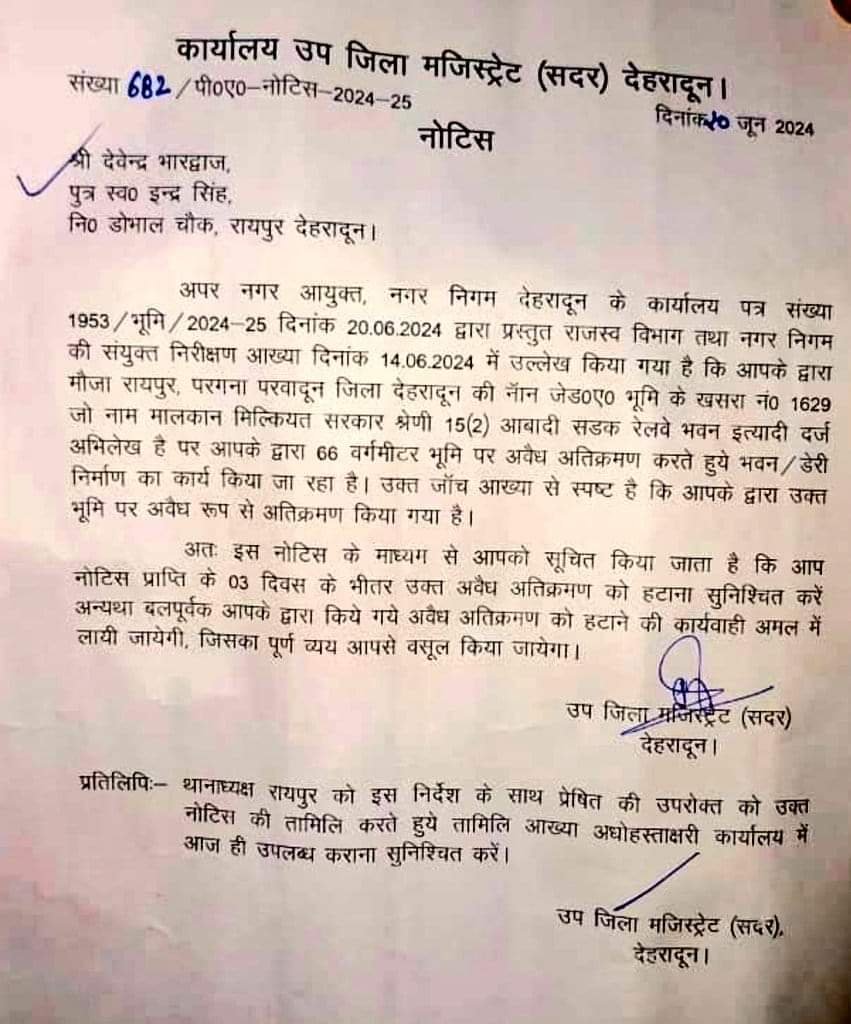 कार्यालय उप जिला मजिस्ट्रेट (सदर) देहरादून।
संख्या 682/पी0ए0-नोटिस-2024-25
दिनांक 20 जून 2024
नोटिस
श्री देवेन्द्र भारद्वाज,
पुत्र स्व0 इन्द्र सिंह,
नि0 डोभाल चौक, रायपुर देहरादून।
अपर नगर आयुक्त, नगर निगम देहरादून के कार्यालय पत्र संख्या
1953/भूमि/2024-25 दिनांक 20.06.2024 द्वारा प्रस्तुत राजस्व विभाग तथा नगर निगम
की संयुक्त निरीक्षण आख्या दिनांक 14.06.2024 में उल्लेख किया गया है कि आपके द्वारा
मौजा रायपुर, परगना परवादून जिला देहरादून की नॅान जेड0ए0 भूमि के खसरा नं0 1629
जो नाम मालकान मिल्कियत सरकार श्रेणी 15(2) आबादी सडक रेलवे भवन इत्यादी दर्ज
अभिलेख है पर आपके द्वारा 66 वर्गमीटर भूमि पर अवैध अतिक्रमण करते हुये भवन/डेरी
निर्माण का कार्य किया जा रहा है। उक्त जॉच आख्या से स्पष्ट है कि आपके द्वारा उक्त
भूमि पर अवैध रूप से अतिक्रमण किया गया है।
अतः इस नोटिस के माध्यम से आपको सूचित किया जाता है कि आप
नोटिस प्राप्ति के 03 दिवस के भीतर उक्त अवैध अतिक्रमण को हटाना सुनिश्चित करें
अन्यथा बलपूर्वक आपके द्वारा किये गये अवैध अतिक्रमण को हटाने की कार्यवाही अमल में
लायी जायेगी, जिसका पूर्ण व्यय आपसे वसूल किया जायेगा।
उप जिला मजिस्ट्रेट (सदर)
देहरादून।
प्रतिलिपिः- थानाध्यक्ष रायपुर को इस निर्देश के साथ प्रेषित की उपरोक्त को उक्त
नोटिस की तामिलि करते हुये तामिलि आख्या अधोहस्ताक्षरी कार्यालय में
आज ही उपलब्ध कराना सुनिश्चित करें।
उप जिला मजिस्ट्रेट (सदर),
देहरादून।